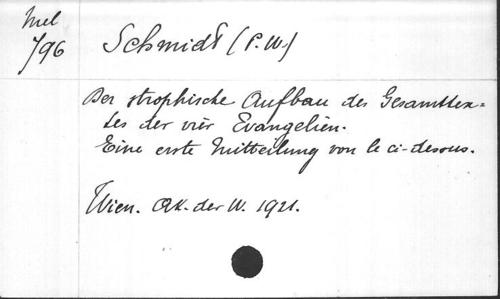 Mel
796
Schmidt (P. W.)
Der strophische Aufbau des Gesamttex-
tes der vier Evangelien.
Eine erste Mitteilung von le ci-dessus.
Wien. Ak. der W. 1921.